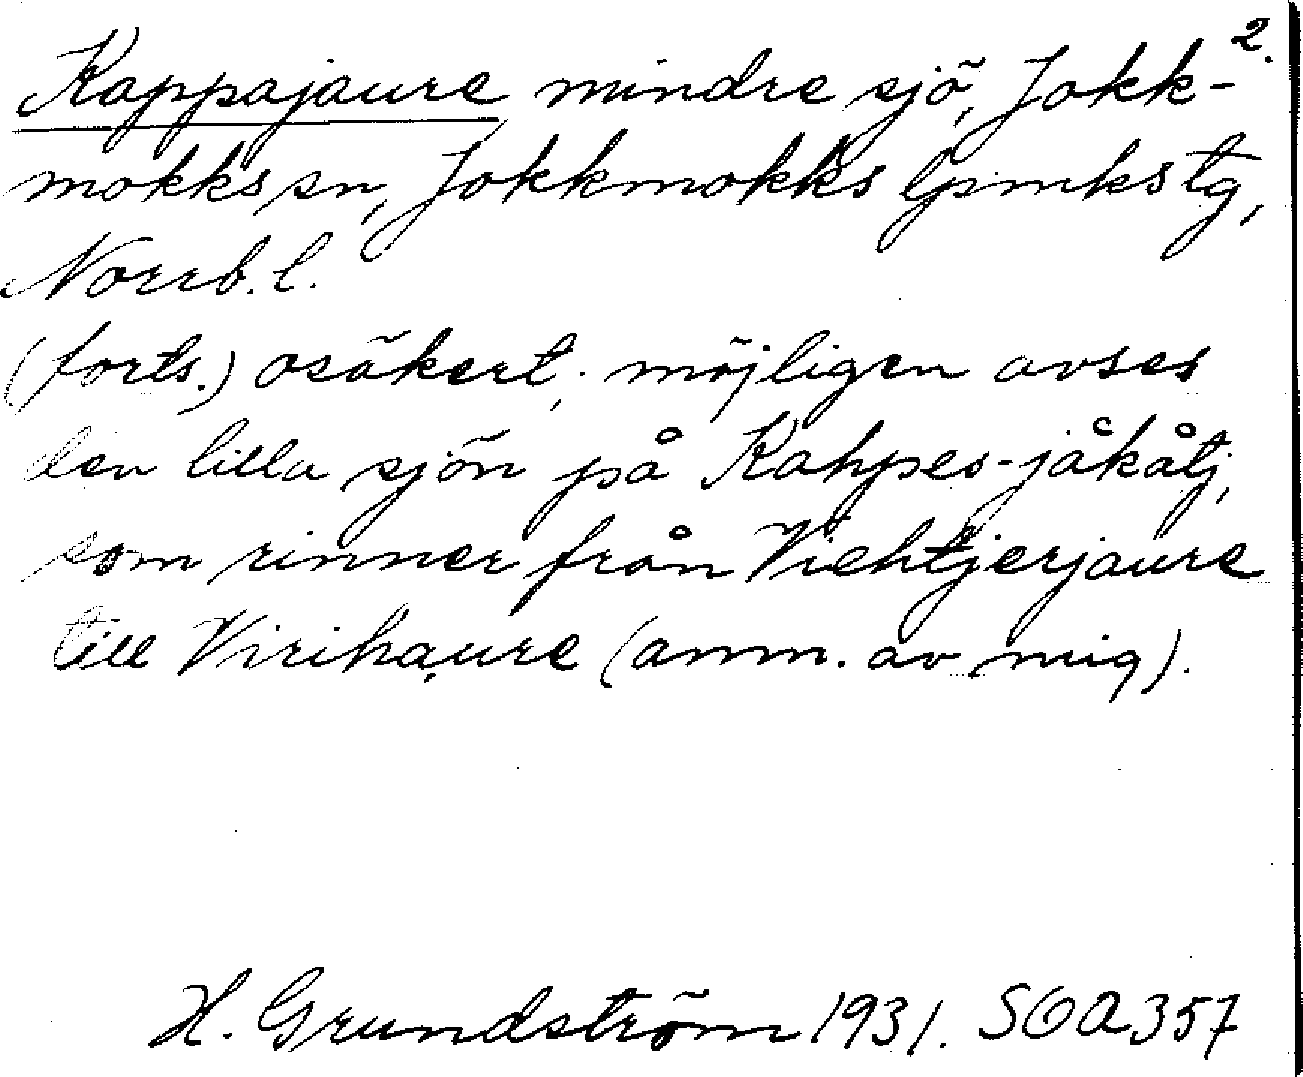 2.
Kappajaure mindre sjö, Jokk-
mokks sn, Jokkmokks lpmks tg,
Norrb. l.
(forts.) osäkert; möjligen avses
den lilla sjön på Kahpes-jåkåtj,
som rinner från Viehtjerjaure
till Virihaure (anm. av mig).
H. Grundström 1931. SOA 357